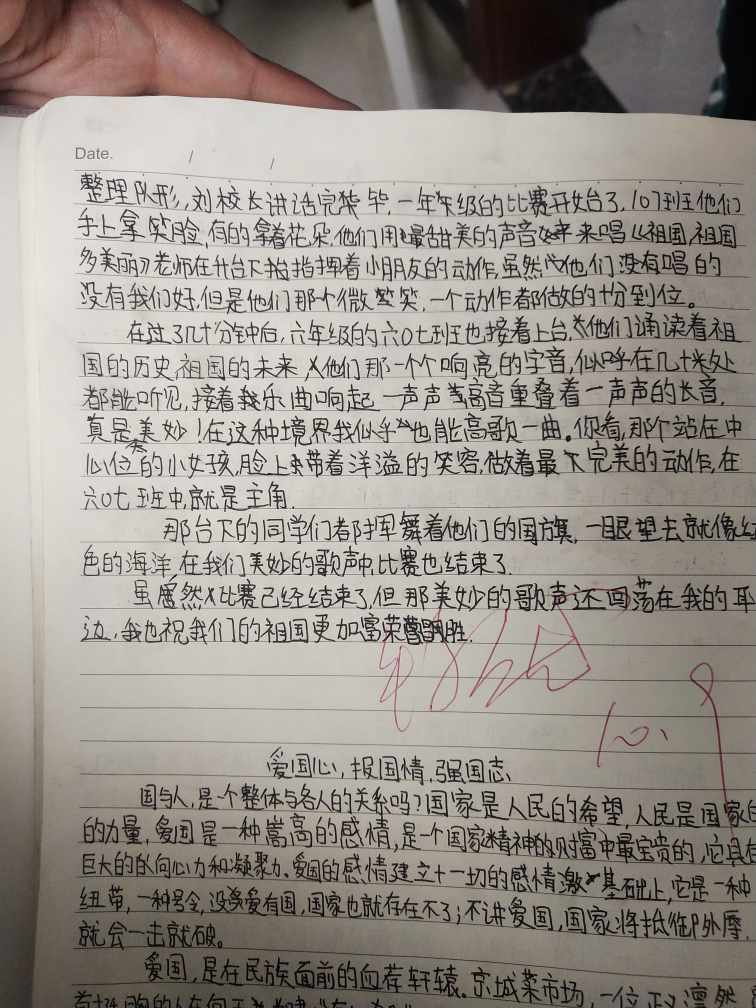 Date. / /
整理队形,刘校长讲话完毕,一年级的比赛开始了,107班他们
手上拿笑脸,有的拿着花朵,他们用最甜美的声音来唱《祖国,祖国
多美丽》老师在台下指挥着小朋友的动作,虽然他们没有唱的
没有我们好,但是他们那个微笑,一个动作都做的十分到位。
在过了几十分钟后,六年级的六0七班也接着上台,他们诵读着祖
国的历史,祖国的未来,他们那一个个响亮的字音,似乎在几十米处
都能听见,接着音乐曲响起一声声高音重叠着一声声的长音,
真是美妙!在这种境界我似乎也能高歌一曲。你看,那个站在中
心位的小女孩,脸上带着洋溢的笑容,做着最完美的动作,在
六0七班中就是主角.
那台下的同学们都挥舞着他们的国旗,一眼望去就像红
色的海洋,在我们美妙的歌声中,比赛也结束了.
虽然比赛已经结束了,但那美妙的歌声还回荡在我的耳
边,我也祝我们的祖国更加富荣昌胜.
10.9
爱国心,报国情,强国志
国与人,是个整体与各人的关系吗?国家是人民的希望,人民是国家的
的力量,爱国是一种嵩高的感情,是个国家精神的财富中最宝贵的,它具有
巨大的向心力和凝聚力、爱国的感情建立十一切的感情激基础上,它是一种
纽带,一种号令,没爱有国,国家也就存在不了;不讲爱国,国家将抵御外辱,
就会一击就破。
爱国,是在民族面前的血荐轩辕.京城菜市场,一位正义凛然